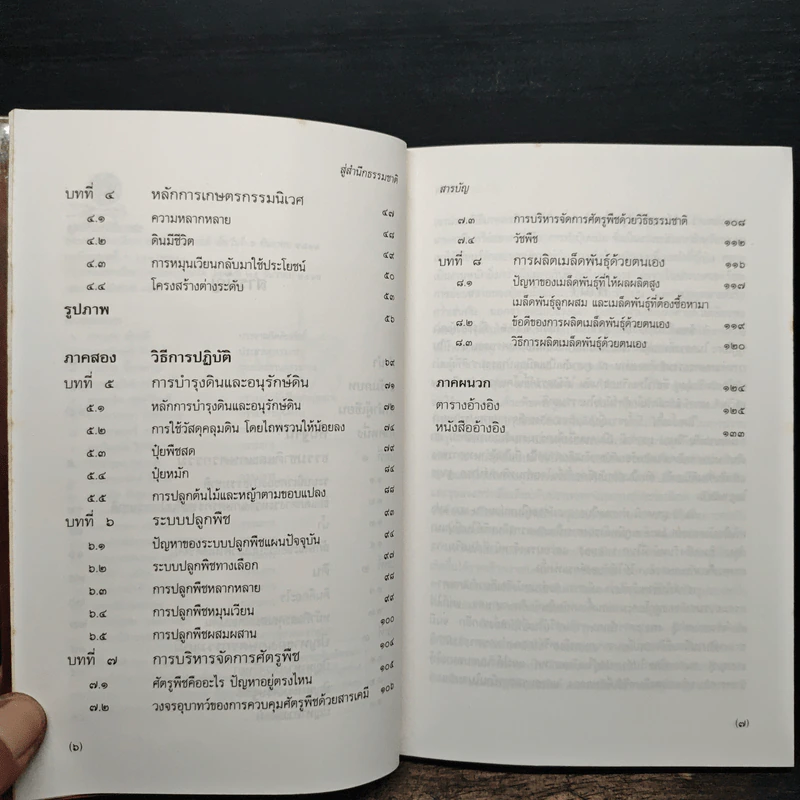 สู่สำนึกธรรมชาติ
บทที่ ๔ หลักการเกษตรกรรมนิเวศ ๔๗
๔.๑ ความหลากหลาย ๔๗
๔.๒ ดินมีชีวิต ๔๘
๔.๓ การหมุนเวียนกลับมาใช้ประโยชน์ ๔๙
๔.๔ โครงสร้างต่างระดับ ๕๐
รูปภาพ ๕๓
๕๖
ภาคสอง วิธีการปฏิบัติ ๖๙
บทที่ ๕ การบำรุงดินและอนุรักษ์ดิน ๗๑
๕.๑ หลักการบำรุงดินและอนุรักษ์ดิน ๗๒
๕.๒ การใช้วัสดุคลุมดิน โดยไถพรวนให้น้อยลง ๗๔
๕.๓ ปุ๋ยพืชสด ๗๙
๕.๔ ปุ๋ยหมัก ๘๔
๕.๕ การปลูกต้นไม้และหญ้าตามขอบแปลง ๘๘
บทที่ ๖ ระบบปลูกพืช ๙๓
๖.๑ ปัญหาของระบบปลูกพืชแผนปัจจุบัน ๙๔
๖.๒ ระบบปลูกพืชทางเลือก ๙๗
๖.๓ การปลูกพืชหลากหลาย ๙๘
๖.๔ การปลูกพืชหมุนเวียน ๙๙
๖.๕ การปลูกพืชผสมผสาน ๑๐๐
บทที่ ๗ การบริหารจัดการศัตรูพืช ๑๐๔
๗.๑ ศัตรูพืชคืออะไร ปัญหาอยู่ตรงไหน ๑๐๕
๗.๒ วงจรอุบาทว์ของการควบคุมศัตรูพืชด้วยสารเคมี ๑๐๖
(๖)
สารบัญ
๗.๓ การบริหารจัดการศัตรูพืชด้วยวิธีธรรมชาติ ๑๐๘
๗.๔ วัชพืช ๑๑๒
บทที่ ๘ การผลิตเมล็ดพันธุ์ด้วยตนเอง ๑๑๖
๘.๑ ปัญหาของเมล็ดพันธุ์ที่ให้ผลผลิตสูง ๑๑๗
เมล็ดพันธุ์ลูกผสม และเมล็ดพันธุ์ที่ต้องซื้อหามา
๘.๒ ข้อดีของการผลิตเมล็ดพันธุ์ด้วยตนเอง ๑๑๙
๘.๓ วิธีการผลิตเมล็ดพันธุ์ด้วยตนเอง ๑๒๐
ภาคผนวก ๑๒๔
ตารางอ้างอิง ๑๒๕
หนังสืออ้างอิง ๑๓๓
(๗)